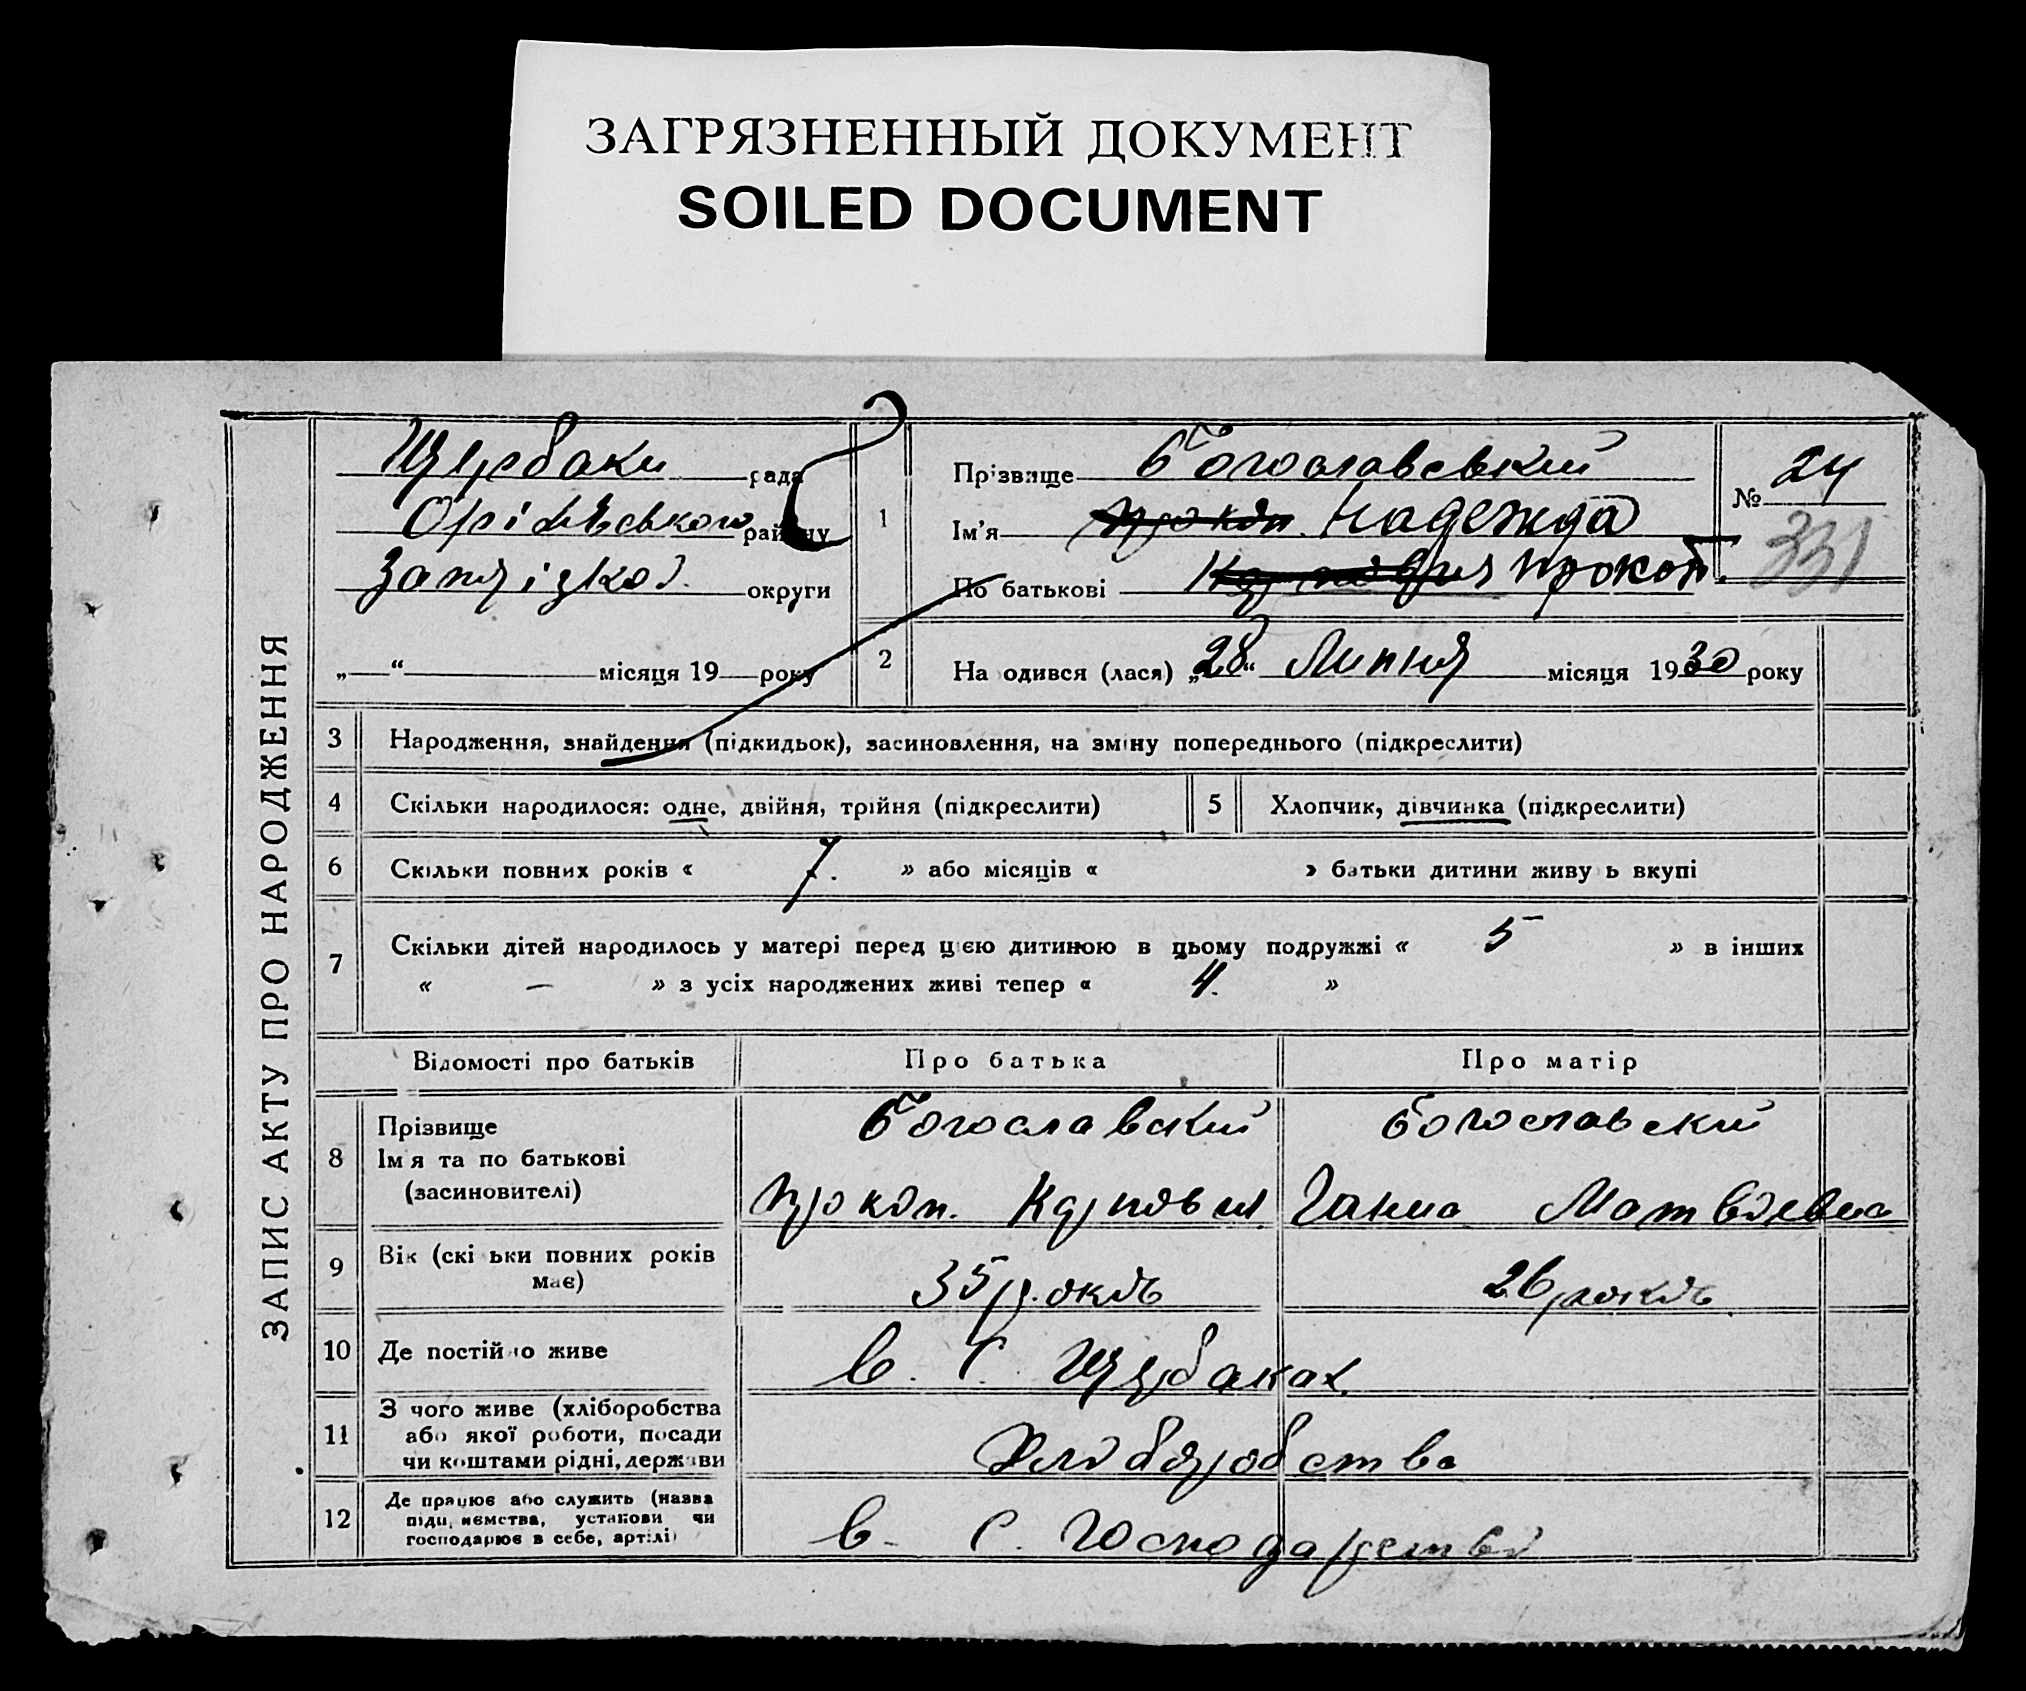 ЗАГРЯЗНЕННЫЙ ДОКУМЕНТ
SOILED DOCUMENT
ЗАПИС АКТУ ПРО НАРОДЖЕННЯ
Щербаки рада
Оріхівського району
Запорізкої округи
„ — “ місяця 19 — року
1 Прізвище Богославський
Ім’я Прокоп Надежда
По батькові Карповия Прокоп.
№ 24
331
2 На одився (лася) „28“ Липня місяця 1930 року
3 Народження, знайдення (підкидьок), засиновлення, на зміну попереднього (підкреслити)
4 Скільки народилося: одне, двійня, трійня (підкреслити) 5 Хлопчик, дівчинка (підкреслити)
6 Скільки повних років « 7. » або місяців « » батьки дитини живу ь вкупі
7 Скільки дітей народилось у матері перед цією дитиною в цьому подружжі « 5 » в інших
« — » з усіх народжених живі тепер « 4. »
Відомості про батьків Про батька Про матір
8 Прізвище
Ім я та по батькові
(засиновителі)
Богославский
Прокоп. Карпович.
Богославский
Ганна Матвіевна
9 Вік (скі ьки повних років
має)
35 років
26 років.
10 Де постій о живе
в. С. Щербаках.
11 З чого живе (хліборобства
або якої роботи, посади
чи коштами рідні, держави
Хліборобства
12 Де працює або служить (назва
підп, иємства, установи чи
господарює в себе, артілі)
в. С. Господарстві